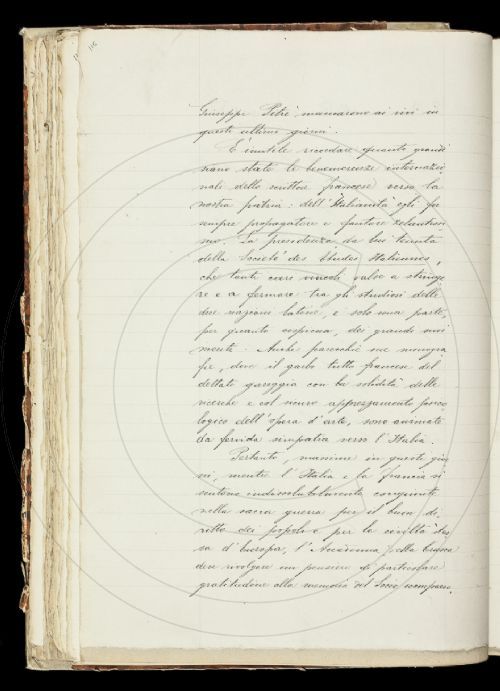 Giuseppe Pitrè mancarono ai vivi in
questi ultimi giorni.
È inutile ricordare quanto grandi
siano state le benemerenze internazio
nali dello scrittore francese verso la
nostra patria: dell'Italianità egli fu
sempre propagatore e fautore zelantissi
mo. La presidenza da lui tenuta
della Società des Etudes Italiennes,
che tanti cari vincoli valse a stringe
re e a fermare tra gli studiosi delle
due nazioni latine, è solo una parte,
per quanto cospicua, dei grandi suoi
meriti. Anche parecchie sue monogra
fie, dove il garbo tutto francese del
dettato gareggia con la solidità delle
ricerche e col sicuro apprezzamento psico
logico dell'opera d'arte, sono animate
da fervida simpatia verso l'Italia.
Pertanto, massime in questi gior
ni, mentre l'Italia e la Francia si
sentono indissolubilmente congiunte
nella sacra guerra per il buon di
ritto dei popoli e per la civiltà stes
sa d'Europa, l'Accademia della Crusca
deve rivolgere un pensiero di particolare
gratitudine alla memoria del Socio scomparso.